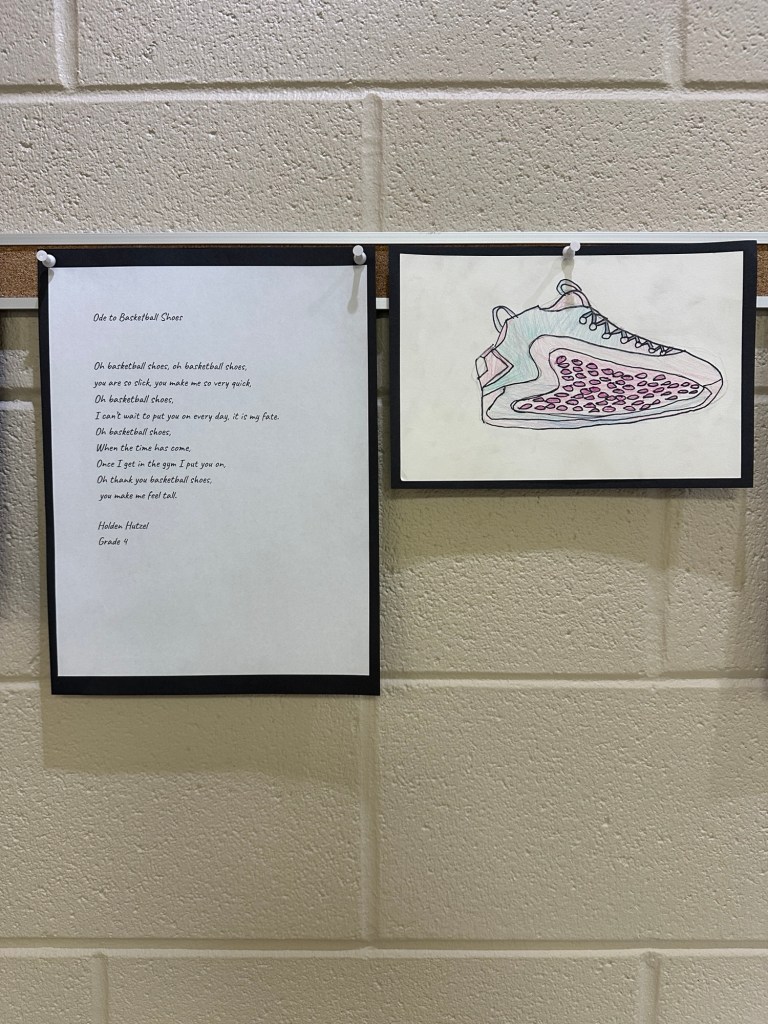 Ode to Basketball Shoes
Oh basketball shoes, oh basketball shoes,
you are so slick, you make me so very quick,
Oh basketball shoes,
I can't wait to put you on every day, it is my fate.
Oh basketball shoes,
When the time has come,
Once I get in the gym I put you on,
Oh thank you basketball shoes,
you make me feel tall.
Holden Hutzel
Grade 4